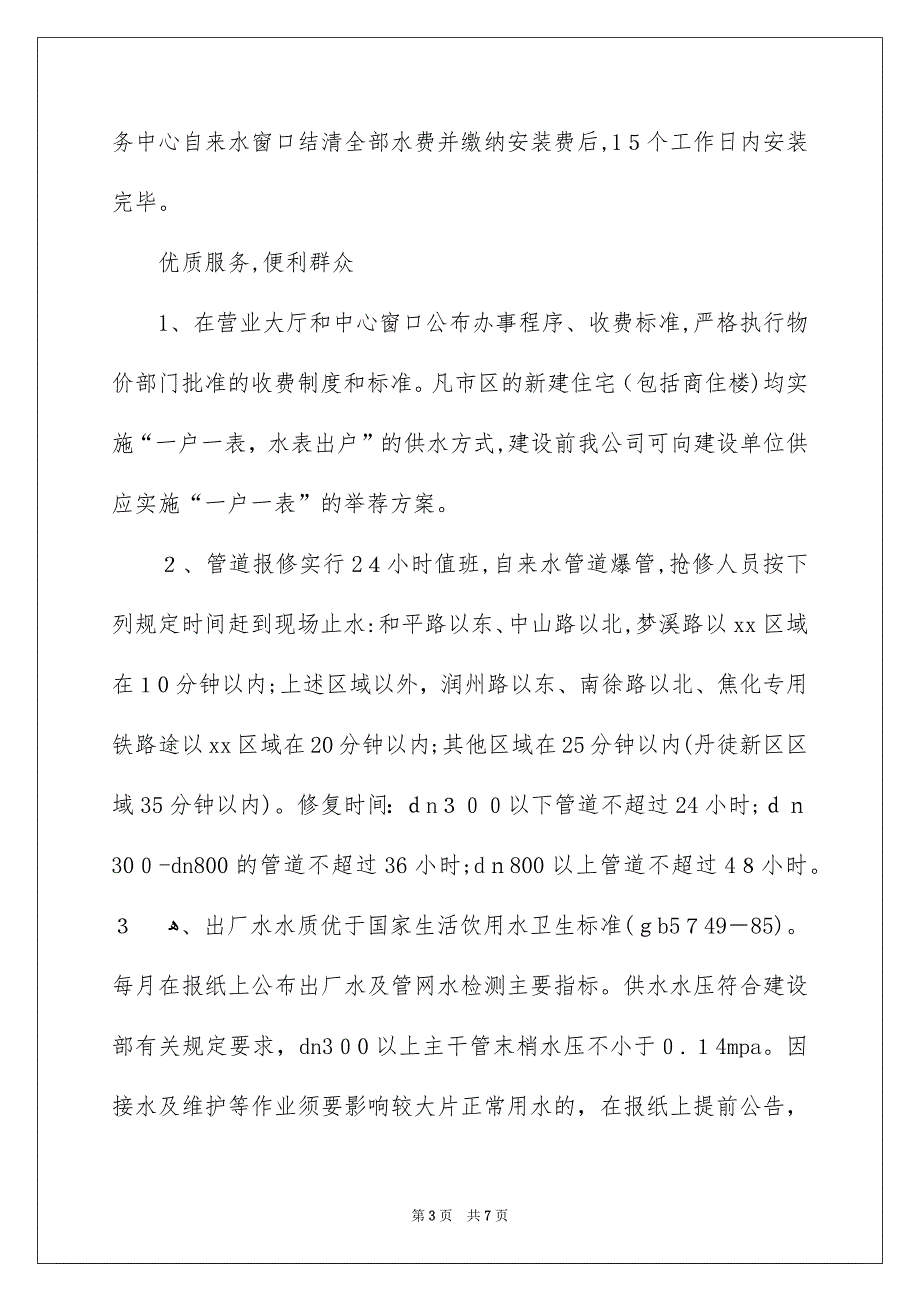 务中心自来水窗口结清全部水费并缴纳安装费后,15个工作日内安装
完毕。
优质服务,便利群众
1、在营业大厅和中心窗口公布办事程序、收费标准,严格执行物
价部门批准的收费制度和标准。凡市区的新建住宅（包括商住楼)均实
施“一户一表，水表出户”的供水方式,建设前我公司可向建设单位供
应实施“一户一表”的举荐方案。
２、管道报修实行24小时值班,自来水管道爆管,抢修人员按下
列规定时间赶到现场止水:和平路以东、中山路以北,梦溪路以xx区域
在10分钟以内;上述区域以外，润州路以东、南徐路以北、焦化专用
铁路途以xx区域在20分钟以内;其他区域在25分钟以内(丹徒新区区
域35分钟以内)。修复时间：ｄn３００以下管道不超过24小时;ｄｎ
300-dn800的管道不超过36小时;dｎ800以上管道不超过４8小时。
３ ﻫ、出厂水水质优于国家生活饮用水卫生标准(ｇb5７49－85)。
每月在报纸上公布出厂水及管网水检测主要指标。供水水压符合建设
部有关规定要求，dn300以上主干管末梢水压不小于0．14mpa。因
接水及维护等作业须要影响较大片正常用水的，在报纸上提前公告，
第3页 共7页